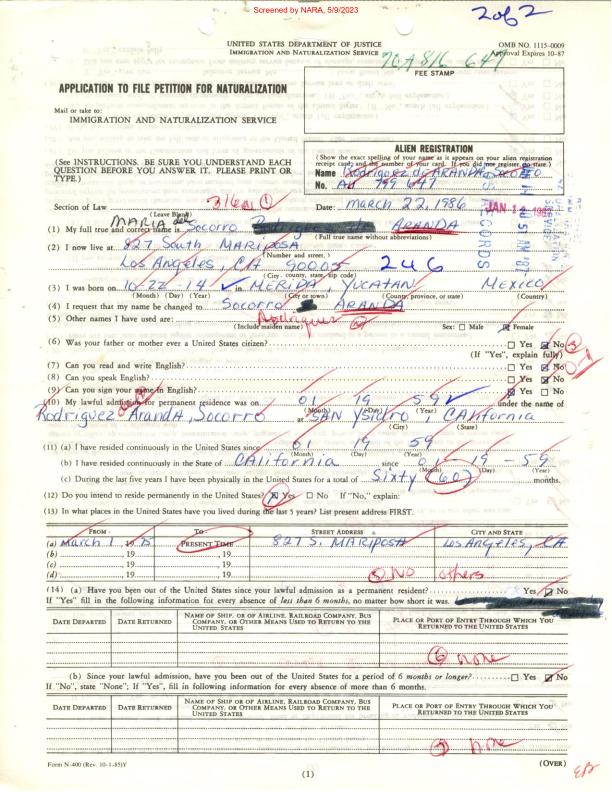 Screened by NARA, 5/9/2023
2 of 2
UNITED STATES DEPARTMENT OF JUSTICE
IMMIGRATION AND NATURALIZATION SERVICE
OMB NO. 1115-0009
Approval Expires 10-87
FEE STAMP
APPLICATION TO FILE PETITION FOR NATURALIZATION
Mail or take to:
IMMIGRATION AND NATURALIZATION SERVICE
ALIEN REGISTRATION
(See INSTRUCTIONS. BE SURE YOU UNDERSTAND EACH QUESTION BEFORE YOU ANSWER IT. PLEASE PRINT OR TYPE.)
(Show the exact spelling of your name as it appears on your alien registration receipt card, and the number of your card. If you did not register, so state.)
Name Rodriguez de ARANDA, SOCORRO
No.
Section of Law 316(a) (1)
(Leave Blank)
Date: march 22, 1986
(1) My full true and correct name is MARIA del Socorro ARANDA
(Full true name without abbreviations)
(2) I now live at 827 South MARIPOSA
(Number and street,)
Los Angeles, CA 90005 246
(City, county, state, zip code)
(3) I was born on 10-22-14 in MERIDA, YUCATAN MEXICO
(Month) (Day) (Year) (City or town) (County, province, or state) (Country)
(4) I request that my name be changed to Socorro ARANDA
(5) Other names I have used are: Rodriguez
(Include maiden name)
Sex: ☐ Male ☒ Female
(6) Was your father or mother ever a United States citizen? ☐ Yes ☒ No
(If "Yes", explain fully)
(7) Can you read and write English? ☐ Yes ☒ No
(8) Can you speak English? ☐ Yes ☒ No
(9) Can you sign your name in English? ☒ Yes ☐ No
(10) My lawful admission for permanent residence was on 01 19 59 under the name of
(Month) (Day) (Year)
Rodriguez de Aranda, Socorro at SAN Ysidro, CAlifornia
(City) (State)
(11) (a) I have resided continuously in the United States since 01 19 59
(Month) (Day) (Year)
(b) I have resided continuously in the State of CAlifornia since 01-19-59
(Month) (Day) (Year)
(c) During the last five years I have been physically in the United States for a total of Sixty (60) months.
(12) Do you intend to reside permanently in the United States? ☒ Yes ☐ No If "No," explain:
(13) In what places in the United States have you lived during the last 5 years? List present address FIRST.
FROM - TO - STREET ADDRESS CITY AND STATE
(a) March 1, 1975 PRESENT TIME 827 S. MARIPOSA Los Angeles, CA
(b) , 19 , 19
(c) , 19 , 19
(d) , 19 , 19 No others
(14) (a) Have you been out of the United States since your lawful admission as a permanent resident? Yes ☒ No
If "Yes" fill in the following information for every absence of less than 6 months, no matter how short it was.
DATE DEPARTED DATE RETURNED NAME OF SHIP, OR OF AIRLINE, RAILROAD COMPANY, BUS COMPANY, OR OTHER MEANS USED TO RETURN TO THE UNITED STATES PLACE OR PORT OF ENTRY THROUGH WHICH YOU RETURNED TO THE UNITED STATES
(6) none
(b) Since your lawful admission, have you been out of the United States for a period of 6 months or longer? ☐ Yes ☒ No
If "No", state "None"; If "Yes", fill in following information for every absence of more than 6 months.
DATE DEPARTED DATE RETURNED NAME OF SHIP, OR OF AIRLINE, RAILROAD COMPANY, BUS COMPANY, OR OTHER MEANS USED TO RETURN TO THE UNITED STATES PLACE OR PORT OF ENTRY THROUGH WHICH YOU RETURNED TO THE UNITED STATES
(7) none
Form N-400 (Rev. 10-1-85)Y
(1)
(OVER)